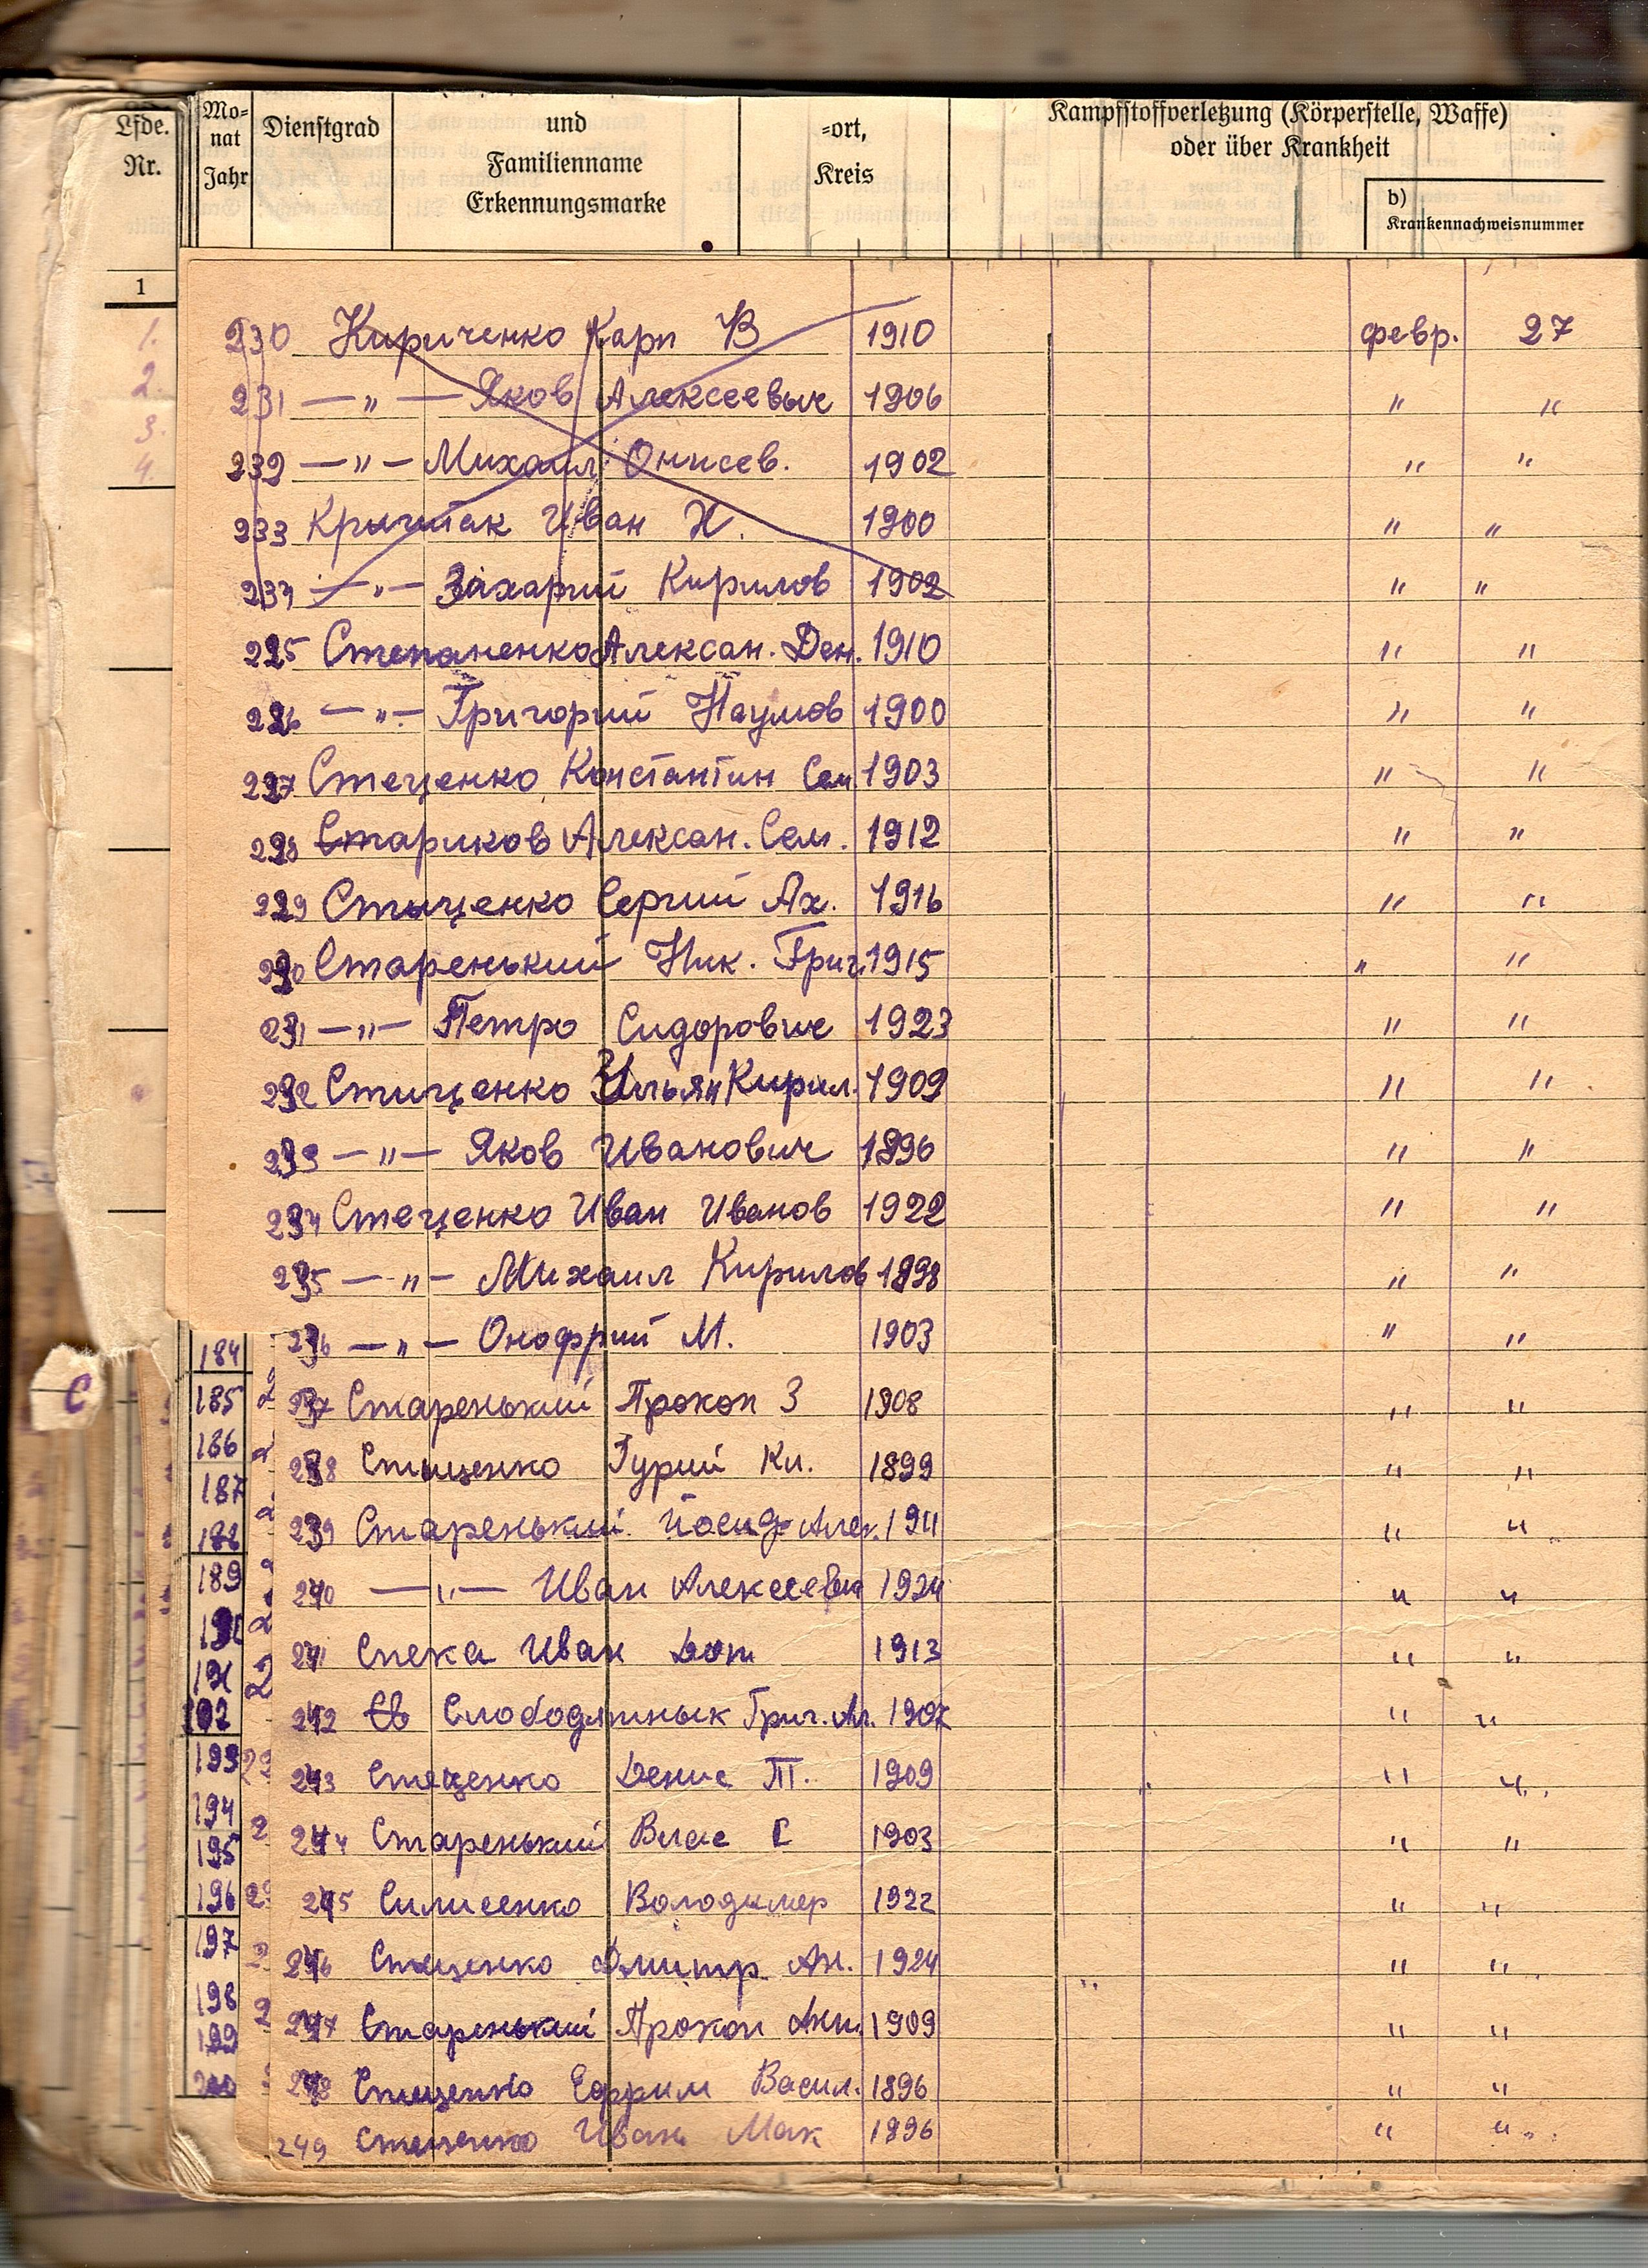 Lfde. Mo- Dienstgrad und =ort, Kampfstoffverletzung (Körperstelle, Waffe)
Nr. nat Familienname Kreis oder über Krankheit
Jahr Erkennungsmarke b)
Krankennachweisnummer
1
1.
2.
3.
4.
230 Кириченко Карп В 1910 февр. 27
231 —〃— Яков Алексеевыч 1906 〃 〃
232 —〃— Михаил Онисев. 1902 〃 〃
233 Крычтак Иван Н. 1900 〃 〃
234 —〃— Захарий Кирилов 1902 〃 〃
225 Степаненко Алексан. Ден. 1910 〃 〃
226 —〃— Григорий Наумов 1900 〃 〃
227 Стеценко Константин Сем 1903 〃 〃
228 Стариков Алексан. Сем. 1912 〃 〃
229 Стыценко Сергий Ах. 1916 〃 〃
230 Старенький Ник. Григ. 1915 〃 〃
231 —〃— Петро Сидорович 1923 〃 〃
232 Стиценко Ульян Кирил. 1909 〃 〃
233 —〃— Яков Иванович 1896 〃 〃
234 Стеценко Иван Иванов 1922 〃 〃
235 —〃— Михаил Кирилов 1898 〃 〃
236 —〃— Онофрий М. 1903 〃 〃
237 Старенький Прокоп З 1908 〃 〃
238 Стыценко Гурий Кл. 1899 〃 〃
239 Старенький Йосиф Алек. 1911 〃 〃
240 —〃— Иван Алексеевич 1924 〃 〃
241 Спека Иван 1913 〃 〃
242 Слободяннык Григ. Ал. 1907 〃 〃
243 Стеценко Денис Т. 1909 〃 〃
244 Старенький Влас С 1903 〃 〃
245 Силисенко Володимер 1922 〃 〃
246 Стеценко Дмитр. Ан. 1924 〃 〃
247 Старенький Прокоп Ант. 1909 〃 〃
248 Стеценко Ефрим Васил. 1896 〃 〃
249 Стеценко Иван Мак 1896 〃 〃
184
185
186
187
188
189
190
191
192
193
194
195
196
197
198
199
200
С